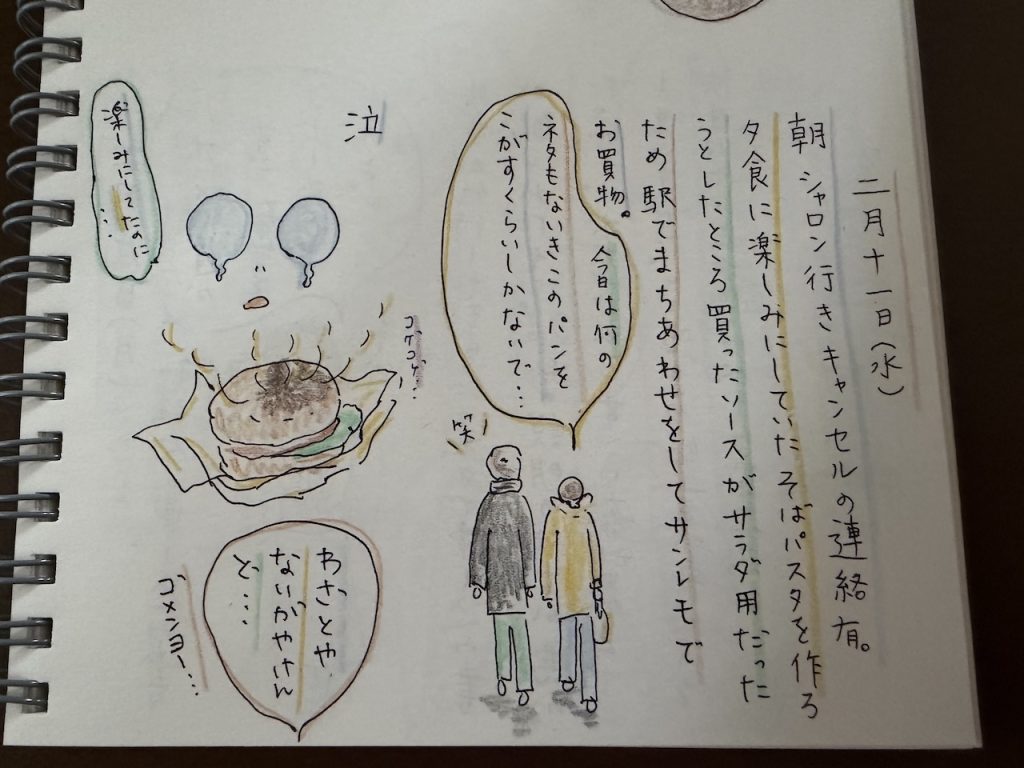 二月十一日(水)
朝シャロン行きキャンセルの連絡有。
夕食に楽しみにしていたそばパスタを作ろ
うとしたところ買ったソースがサラダ用だった
ため駅でまちあわせをしてサンレモで
お買物。
今日は何の
ネタもないきこのパンを
こがすくらいしかないで・・・
笑
泣
楽しみにしてたのに
・・・
コゲコゲ・・・
わざとや
ないがやけん
ど・・・
ゴメンヨー・・・